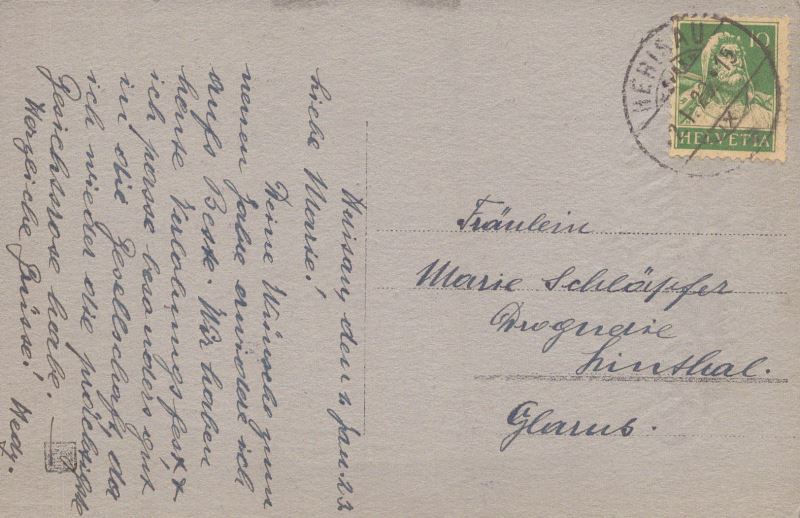 Herisau, den 2 Jan. 23
Liebe Marie!
Deine Wünsche zum
neuen Jahre erwidere ich
aufs Beste. Wir haben
heute Verlobungsfest, &
ich passe besonders gut
in die Gesellschaft, da
ich wieder die prächtigste
Gesichtsrose habe.
Herzliche Grüsse! Hedy.
Fräulein
Marie Schläpfer
Droguerie
Linthal.
Glarus.
10
HELVETIA
HERISAU